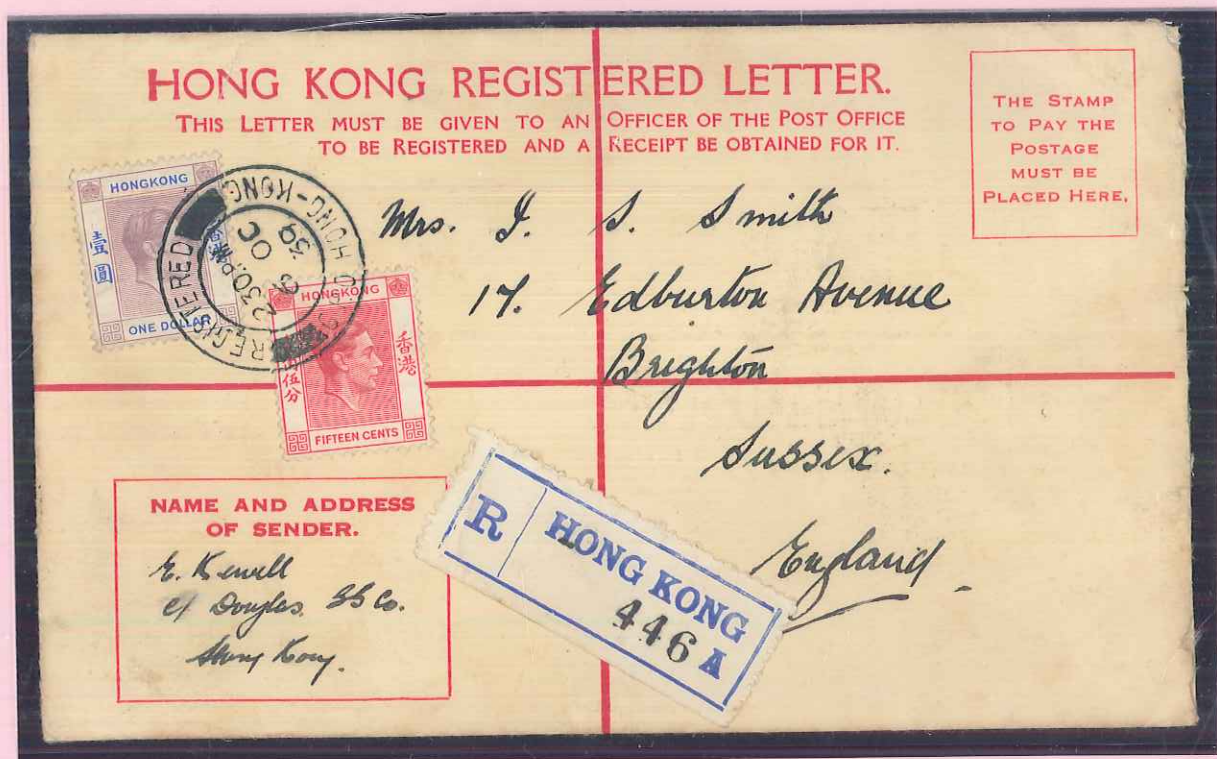 HONG KONG REGISTERED LETTER.
THIS LETTER MUST BE GIVEN TO AN OFFICER OF THE POST OFFICE
TO BE REGISTERED AND A RECEIPT BE OBTAINED FOR IT.
THE STAMP
TO PAY THE
POSTAGE
MUST BE
PLACED HERE.
HONGKONG
壹圓
ONE DOLLAR
REGISTERED
HONG-KONG
2 30PM
OC
39
HONGKONG
香港
伍分
FIFTEEN CENTS
Mrs. I. S. Smith
17. Edburton Avenue
Brighton
Sussex.
England
NAME AND ADDRESS
OF SENDER.
E.
c/ Douglas. SS Co.
Hong Kong.
R
HONG KONG
446 A